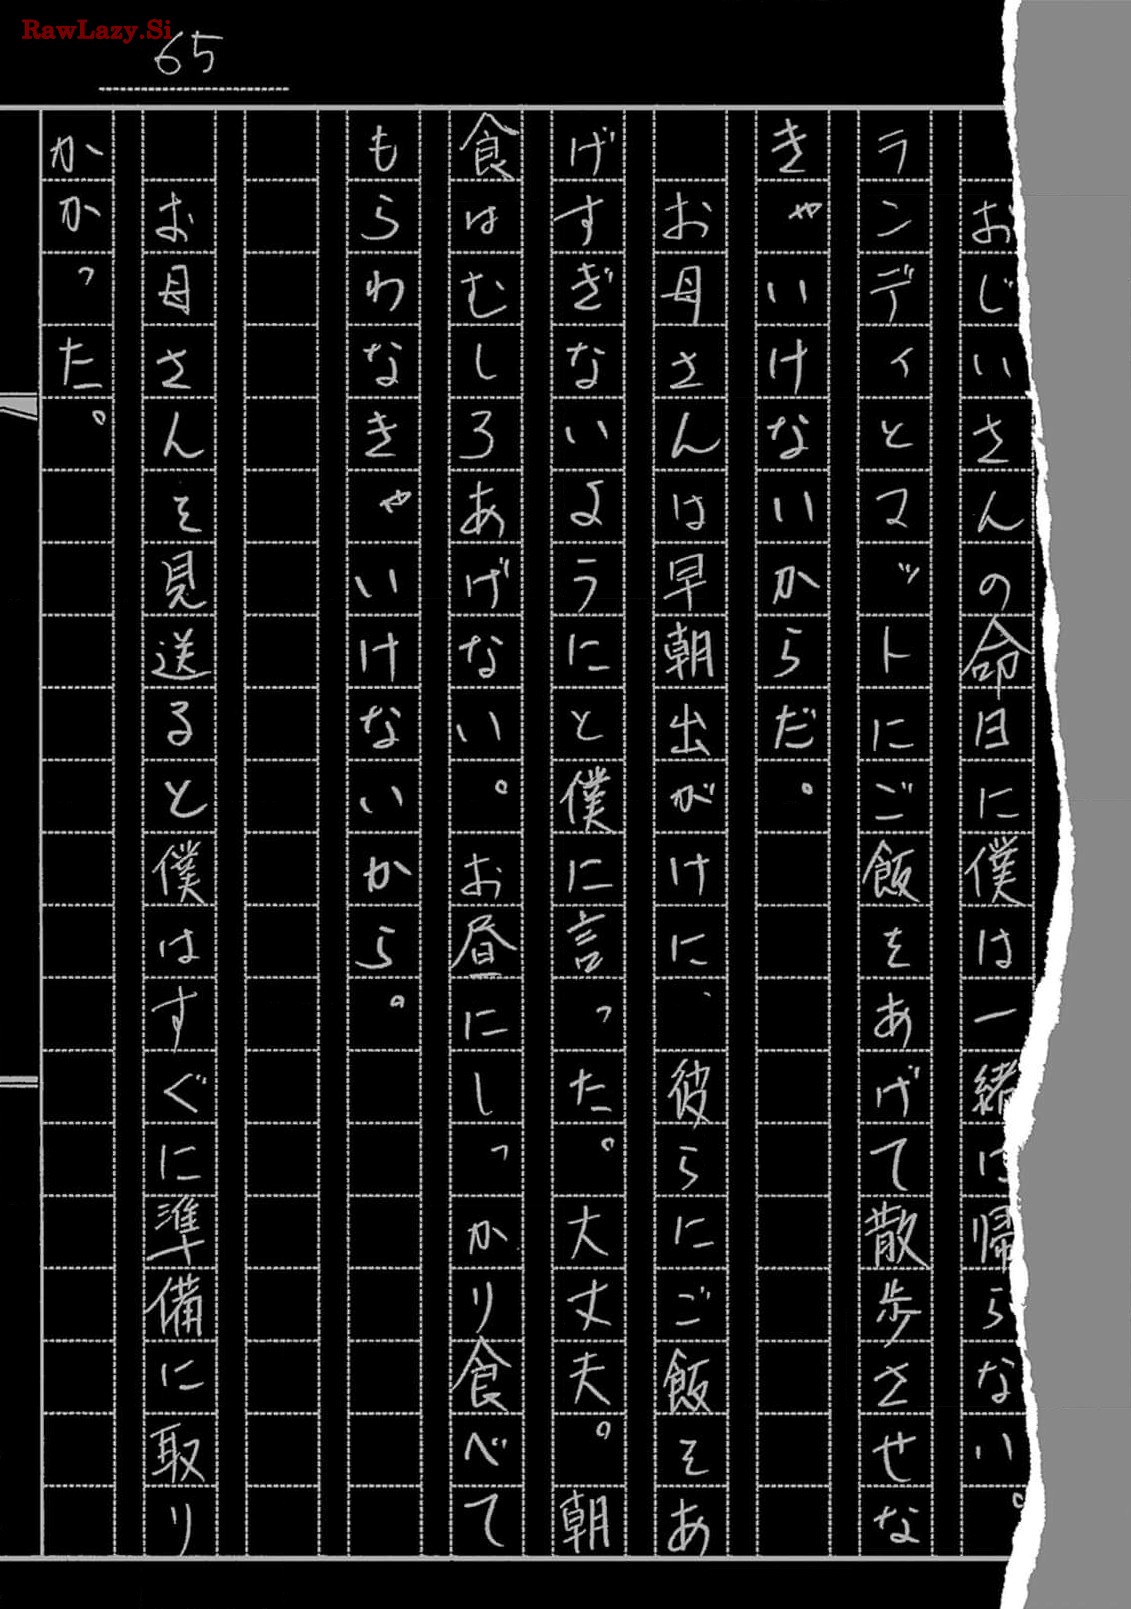 RawLazy.Si
65
おじいさんの命日に僕は一緒に帰らない。
ランディとマットにご飯をあげて散歩させな
きゃいけないからだ。
お母さんは早朝出がけに、彼らにご飯をあ
げすぎないようにと僕に言った。大丈夫。朝
食はむしろあげない。お昼にしっかり食べて
もらわなきゃいけないから。
お母さんを見送ると僕はすぐに準備に取り
かかった。